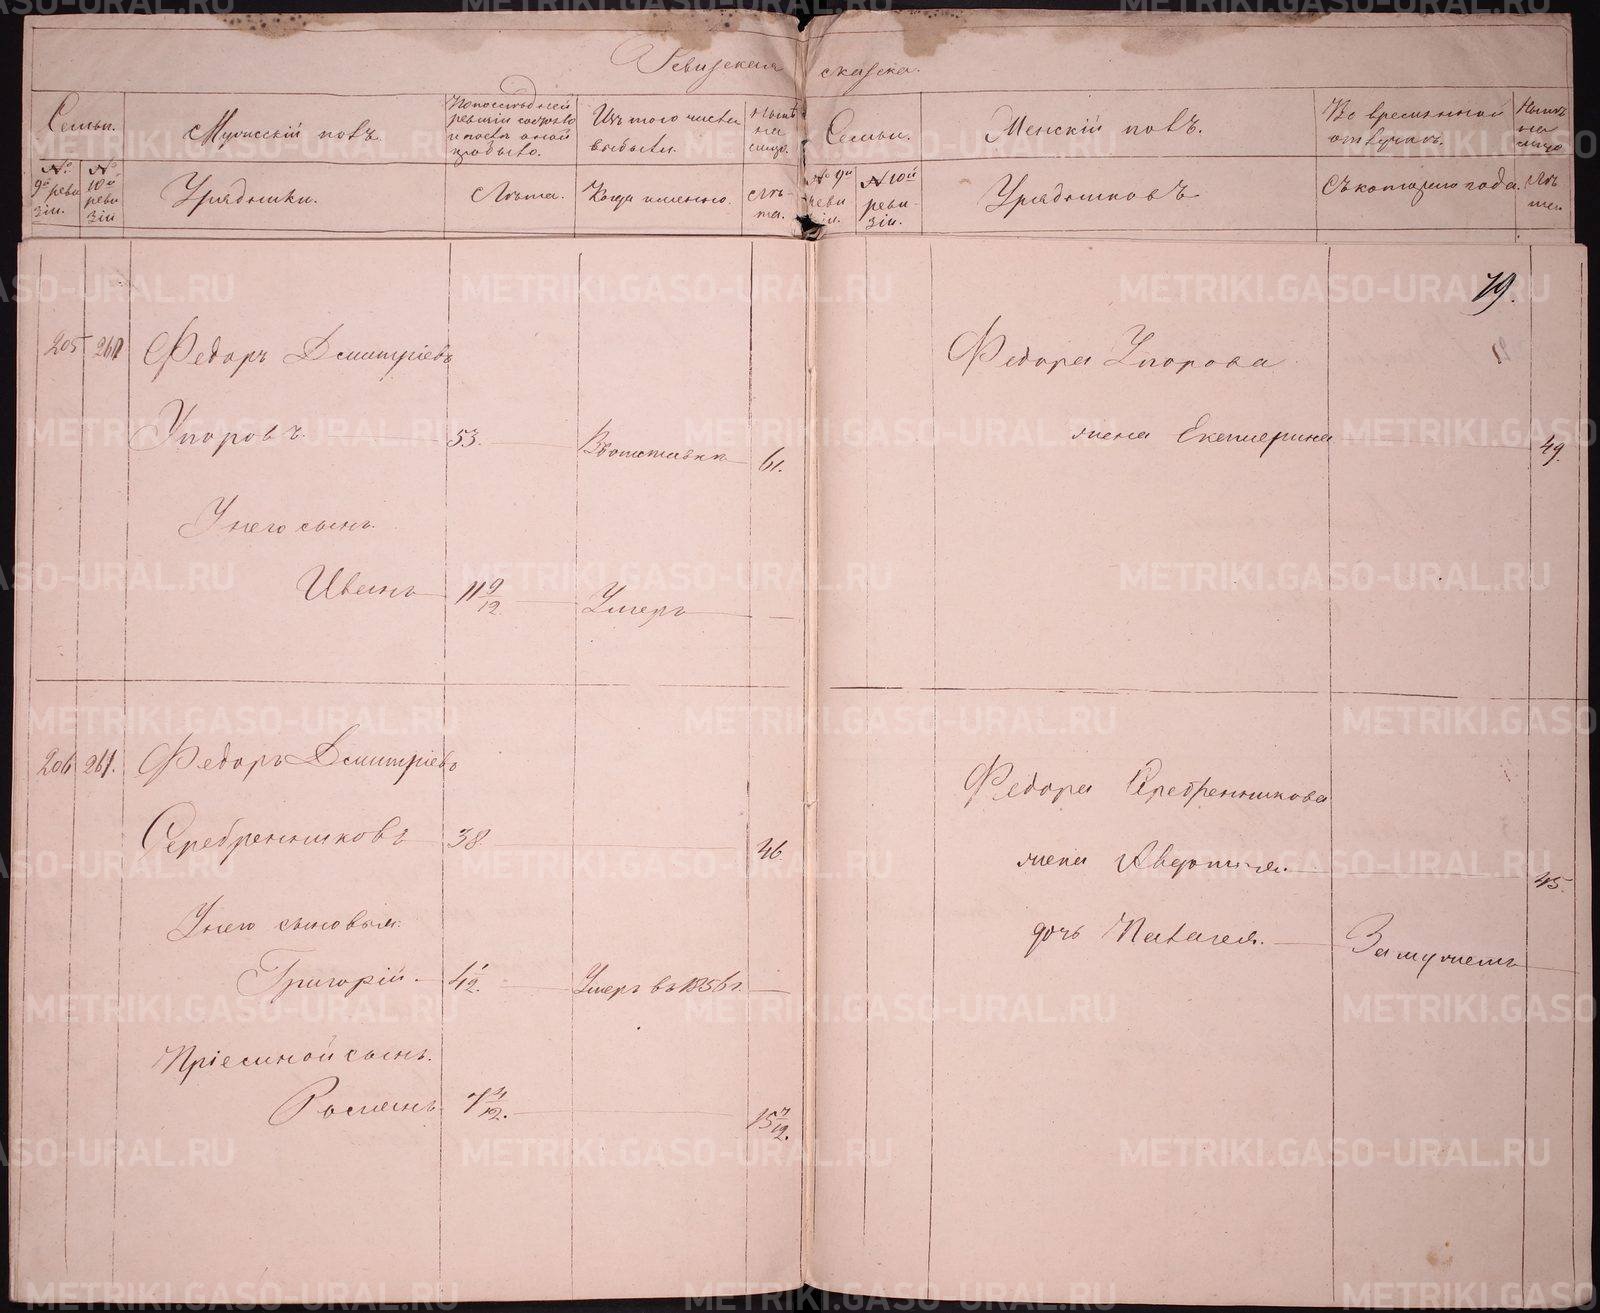 Ревизская сказка.
Семьи.
Мужескій полъ.
По последней ревизіи состояло и после оной прибыло.
Изъ того числа выбыли.
Ныне на лицо.
Семьи.
Женскій полъ.
Во временной отлучке.
Ныне на лицо
№ 9й ревизіи.
№ 10й ревизіи
Урядники.
Лета.
Когда именно.
Лета.
№ 9й ревизіи.
№ 10й ревизіи.
Урядниковъ
Съ котораго года.
Лета.
79.
205 260 Федоръ Дмитріевъ
Упоровъ. 53. В отставке 61.
У него сынъ.
Иванъ 11 9/12. Умеръ —
Федора Упорова
жена Екатерина 49.
206 261. Федоръ Дмитріевъ
Серебренниковъ 38 46.
У него сыновья:
Григорій 4 1/2. Умеръ въ 1856 г. —
Пріемной сынъ.
Романъ 7 4/12. 15 7/12.
Федора Серебренникова
жена Авдотья. 45.
дочь Палагея. Замужемъ —
METRIKI.GASO-URAL.RU